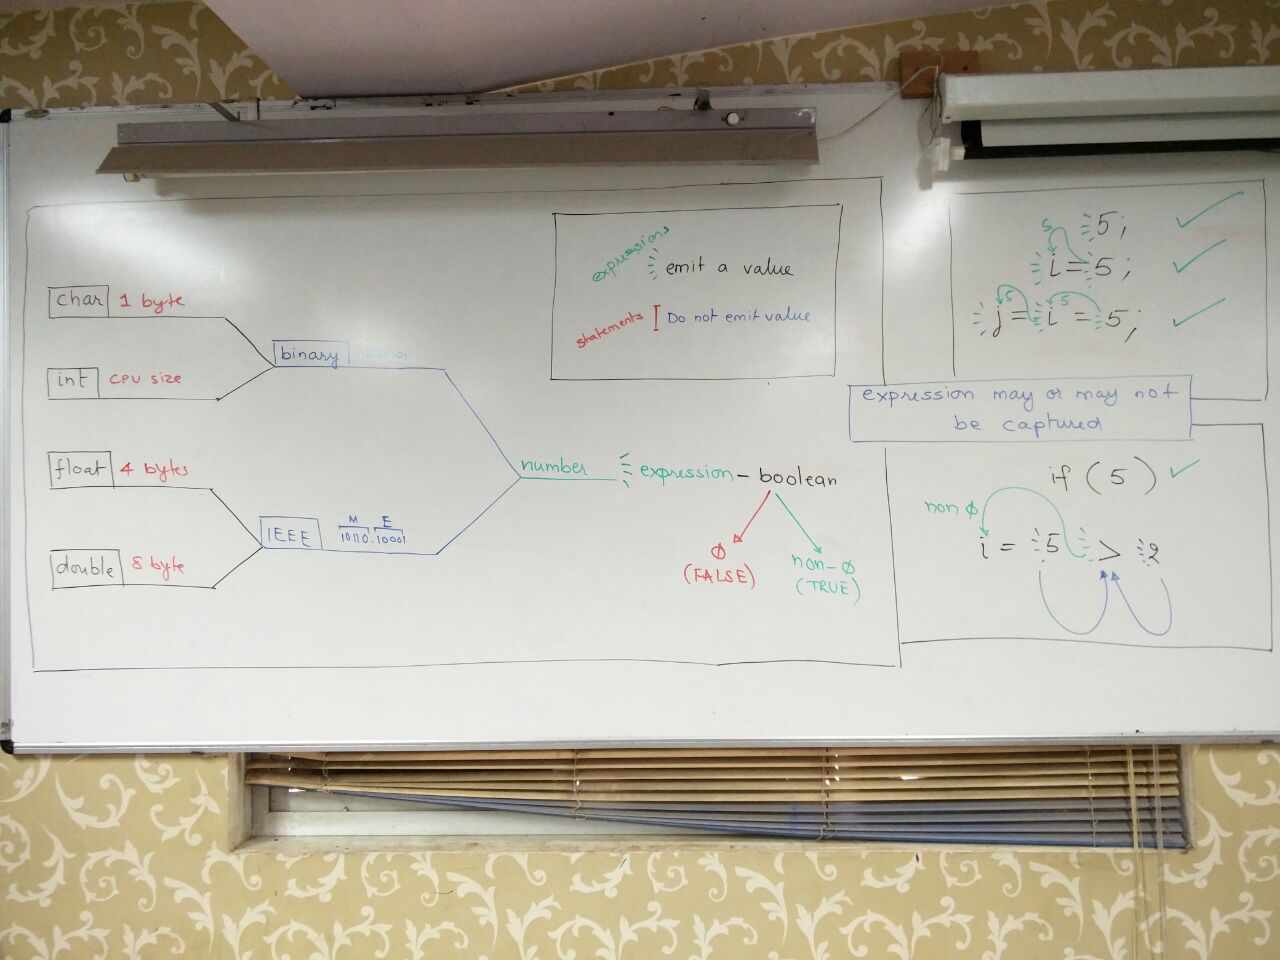 char 1 byte
int CPU size
float 4 bytes
double 8 byte
binary
IEEE
M E
10110.10001
number
expression - boolean
Ø
(FALSE)
non-Ø
(TRUE)
expressions
emit a value
statements
Do not emit value
5;
5
i = 5;
5 5
j = i = 5;
expression may or may not
be captured
if (5)
non Ø
i = 5 > 2